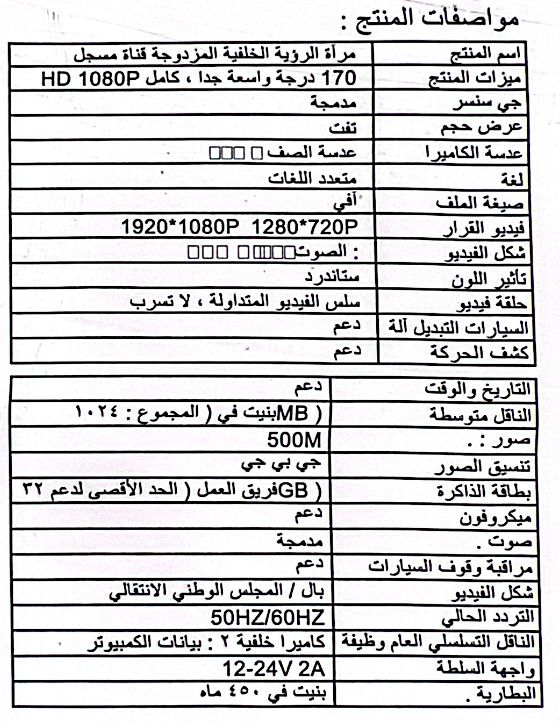 مواصفات المنتج :
اسم المنتج مرآة الرؤية الخلفية المزدوجة قناة مسجل
ميزات المنتج 170 درجة واسعة جدا ، كامل HD 1080P
جي سنسر مدمجة
عرض حجم تفت
عدسة الكاميرا عدسة الصف □ □□□
لغة متعدد اللغات
صيغة الملف آفي
فيديو القرار 1920*1080P 1280*720P
شكل الفيديو : الصوت
تأثير اللون ستاندرد
حلقة فيديو سلس الفيديو المتداولة ، لا تسرب
السيارات التبديل آلة دعم
كشف الحركة دعم
التاريخ والوقت دعم
الناقل متوسطة ( MBبنيت في ( المجموع : ١٠٢٤
صور : . 500M
تنسيق الصور جي بي جي
بطاقة الذاكرة ( GBفريق العمل ( الحد الأقصى لدعم ٣٢
ميكروفون دعم
صوت . مدمجة
مراقبة وقوف السيارات دعم
شكل الفيديو بال / المجلس الوطني الانتقالي
التردد الحالي 50HZ/60HZ
الناقل التسلسلي العام وظيفة كاميرا خلفية ٢ : بيانات الكمبيوتر
واجهة السلطة 12-24V 2A
البطارية . بنيت في ٤٥٠ ماه